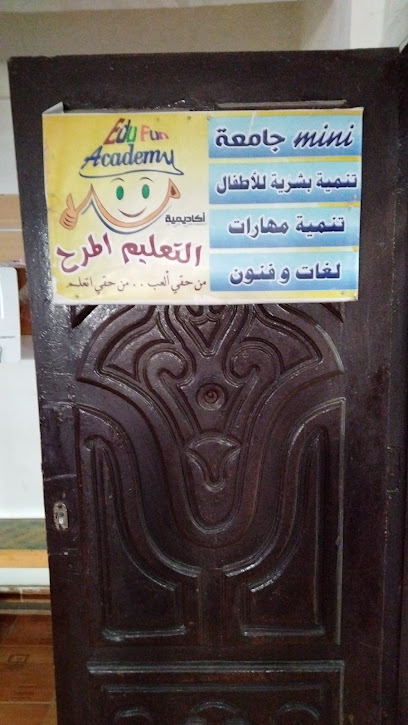 Edu Fun
Academy
أكاديمية
التعليم المرح
من حقي ألعب . . من حقي اتعلم
mini جامعة
تنمية بشرية للأطفال
تنمية مهارات
لغات و فنون